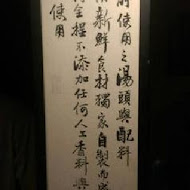 使用之湯頭與配料
新鮮食材獨家自製而成
全程不添加任何人工香料與
使用